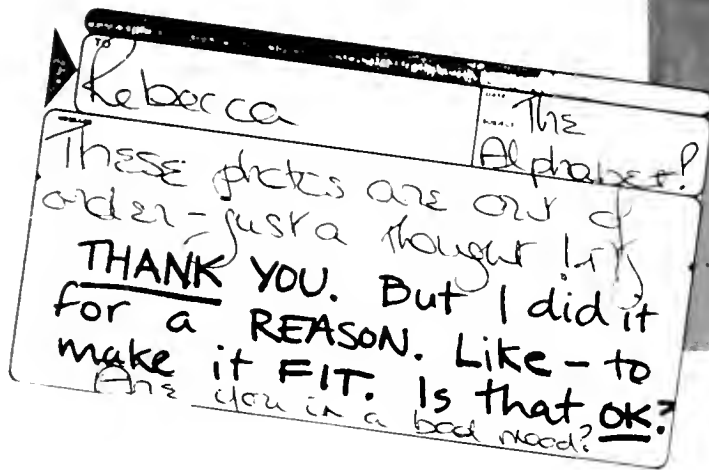 TO
Rebecca
The
Alphabet!
These photos are out of
order - just a thought
THANK YOU. But I did it
for a REASON. Like - to
make it FIT. Is that OK?
Are you in a bad mood?